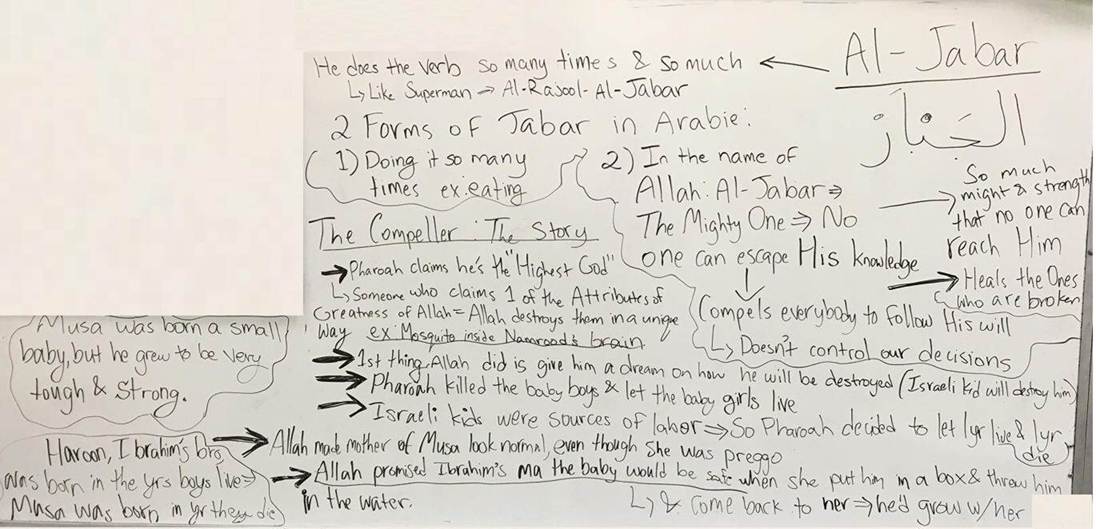 Al-Jabar
الجَبّار
He does the verb so many times & so much ←
↳ Like Superman → Al-Rajool-Al-Jabar
2 Forms of Jabar in Arabic:
1) Doing it so many
times ex: eating
2) In the name of
Allah: Al-Jabar ⇒
The Mighty One ⇒ No
one can escape His knowledge
→ So much
might & strength
that no one can
reach Him
→ Heals the Ones
who are broken
↓
Compels everybody to follow His will
↳ Doesn't control our decisions
The Compeller: The Story
→ Pharoah claims he's the "Highest God"
↳ Someone who claims 1 of the Attributes of
Greatness of Allah = Allah destroys them in a unique
way ex: Mosquito inside Namrood's brain
→ 1st thing Allah did is give him a dream on how he will be destroyed (Israeli kid will destroy him)
→ Pharoah killed the baby boys & let the baby girls live
→ Israeli kids were sources of labor ⇒ So Pharoah decided to let 1yr live & 1yr
die
→ Allah made mother of Musa look normal, even though she was preggo
→ Allah promised Ibrahim's ma the baby would be safe when she put him in a box & threw him
in the water.
↳ & come back to her ⇒ he'd grow w/ her
Musa was born a small
baby, but he grew to be very
tough & strong.
Haroon, Ibrahim's bro
was born in the yrs boys live ⇒
Musa was born in yr they die